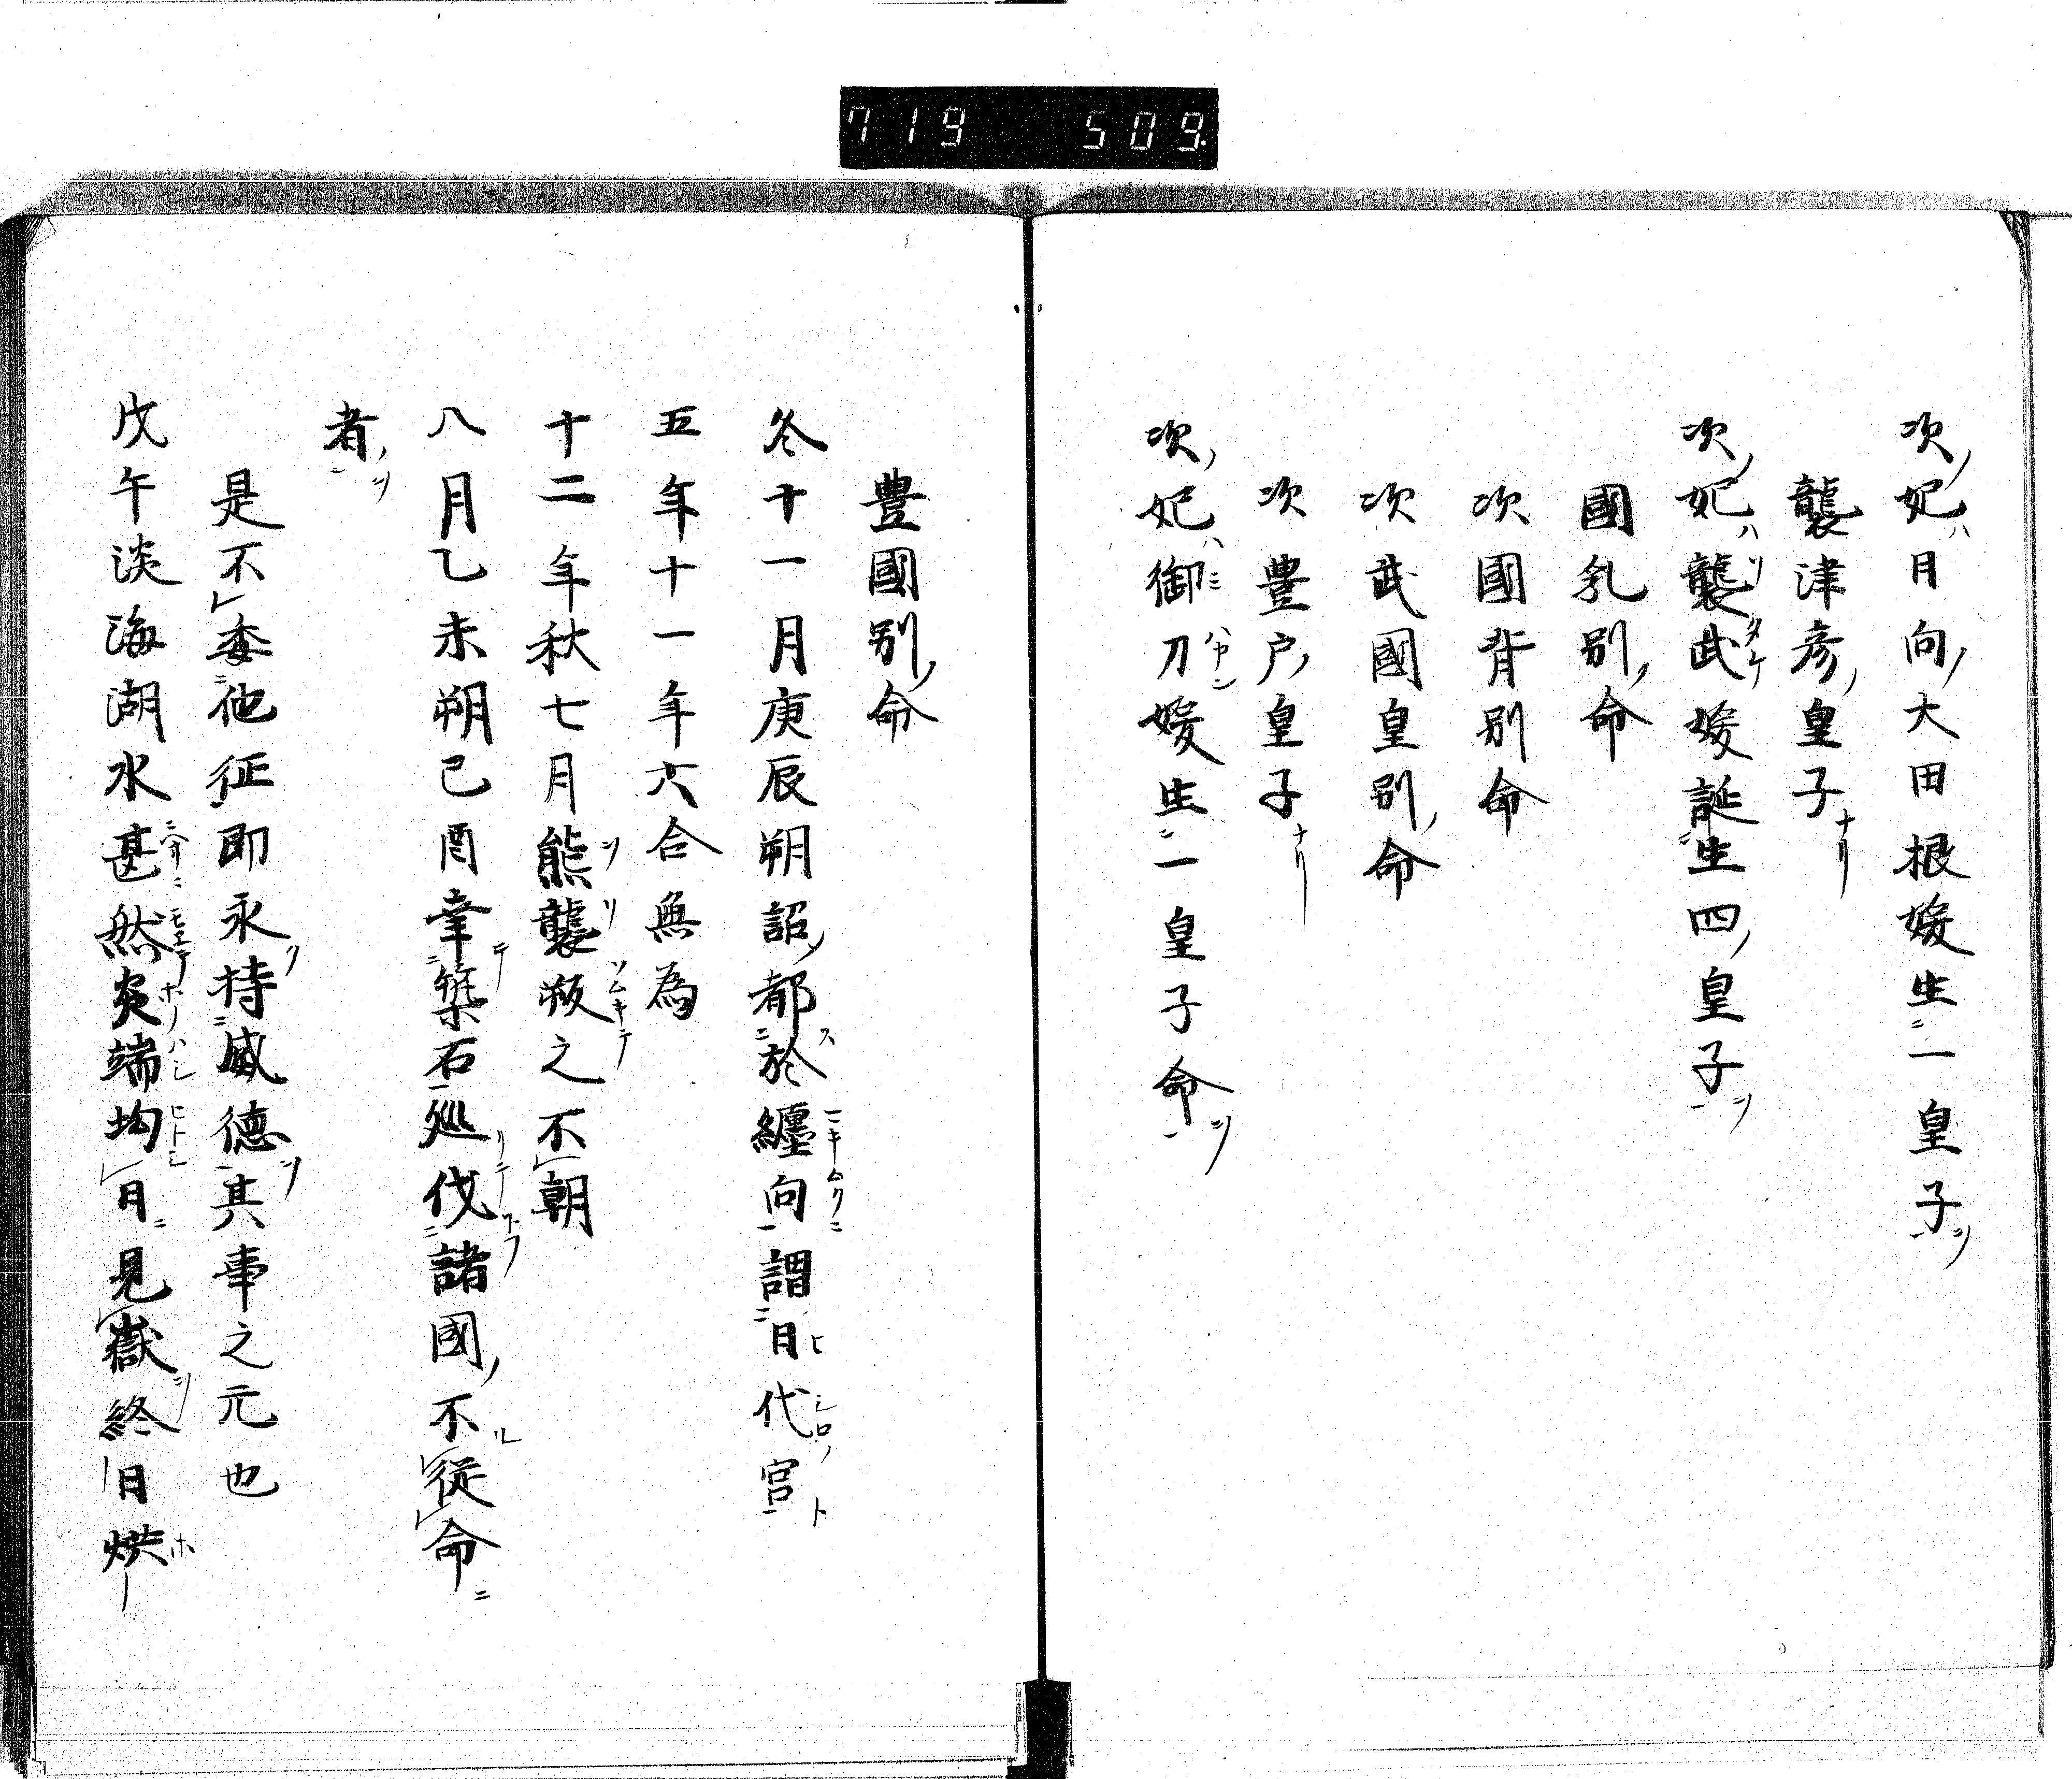 719 509.
次妃日向大田根媛生一皇子
襲津彦皇子
次妃襲武媛誕生四皇子
國乳別命
次國背別命
次武國皇別命
次豊戸皇子
次妃御刀媛生一皇子命
豊國別命
冬十一月庚辰朔詔都於纏向謂日代宮
五年十一年六合無為
十二年秋七月熊襲叛之不朝
八月乙未朔己酉幸築石巡伐諸國不従命
者
是不委他征即永持威徳其事之元也
戊午淡海湖水甚然炎端均日見嶽終日烘